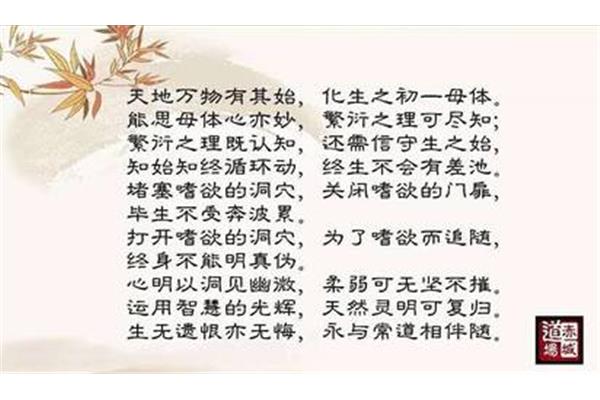 天地万物有其始，化生之初一母体。
能思母体心亦妙，繁衍之理可尽知；
繁衍之理既认知，还需信守生之始，
知始知终循环动，终生不会有差池。
堵塞嗜欲的洞穴，关闭嗜欲的门扉，
毕生不受奔波累。
打开嗜欲的洞穴，为了嗜欲而追随，
终身不能明真伪。
心明以洞见幽微，柔弱可无坚不摧。
运用智慧的光辉，天然灵明可复归。
生无遗恨亦无悔，永与常道相伴随。
赤城
道场